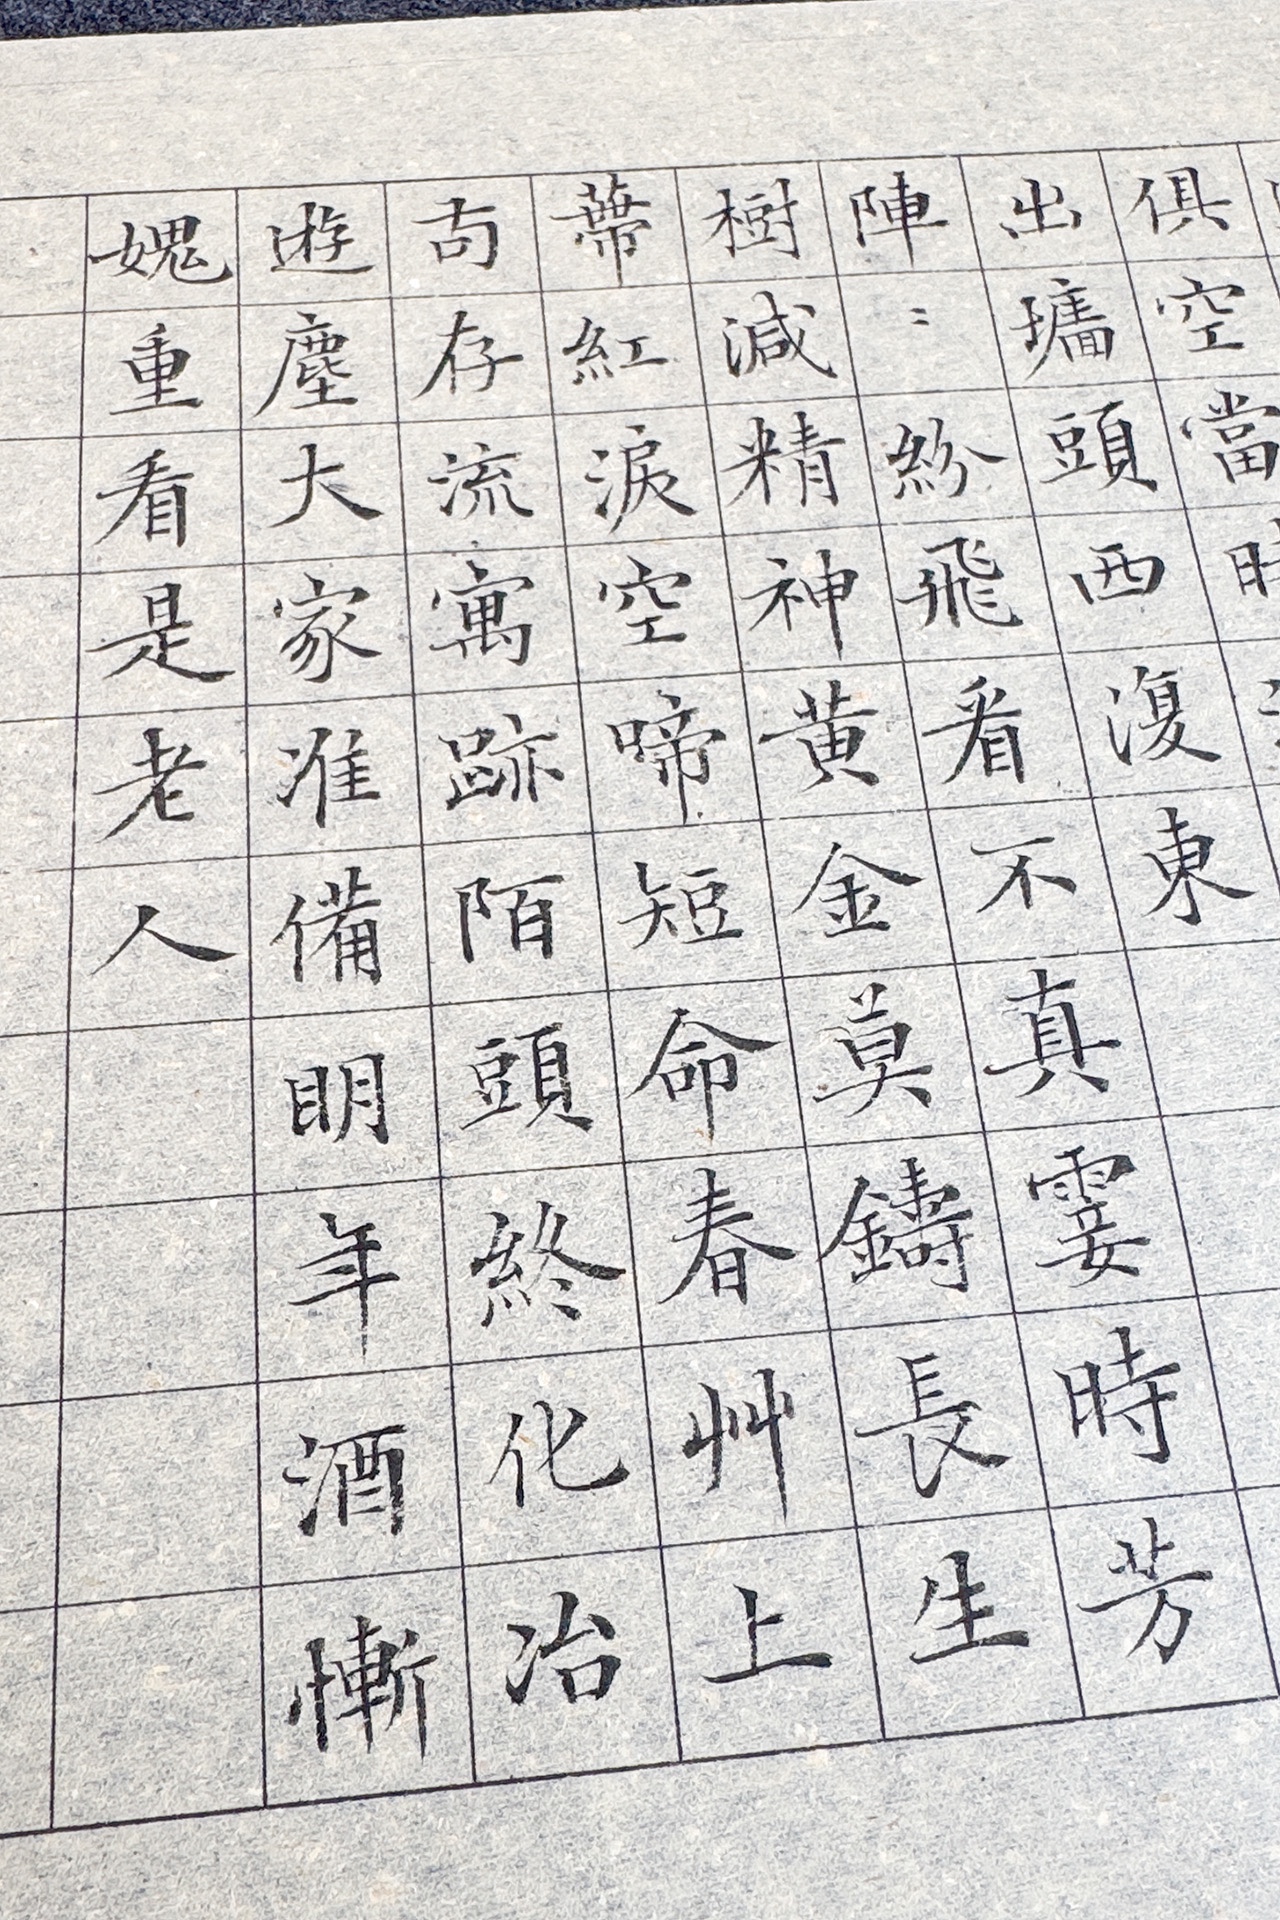 俱空當時
出墻頭西復東
陣〻紛飛看不真霎時芳
樹減精神黃金莫鑄長生
蔕紅淚空啼短命春艸上
尚存流寓跡陌頭終化冶
遊塵大家准備明年酒慚
媿重看是老人